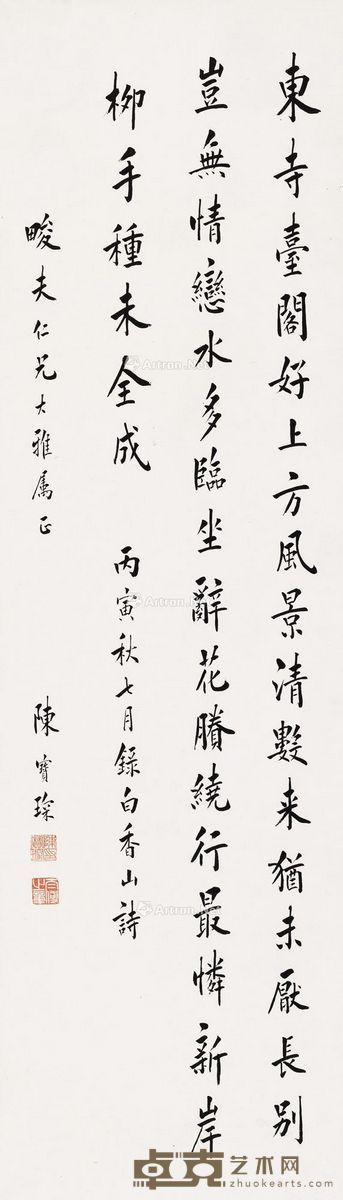 東寺臺閣好上方風景清數来猶未厭長別
豈無情戀水多臨坐辭花賸繞行最憐新岸
柳手種未全成
丙寅秋七月録白香山詩
畯夫仁兄大雅属正
陳寶琛
Artron.Net
卓克艺术网
www.zhuokearts.com